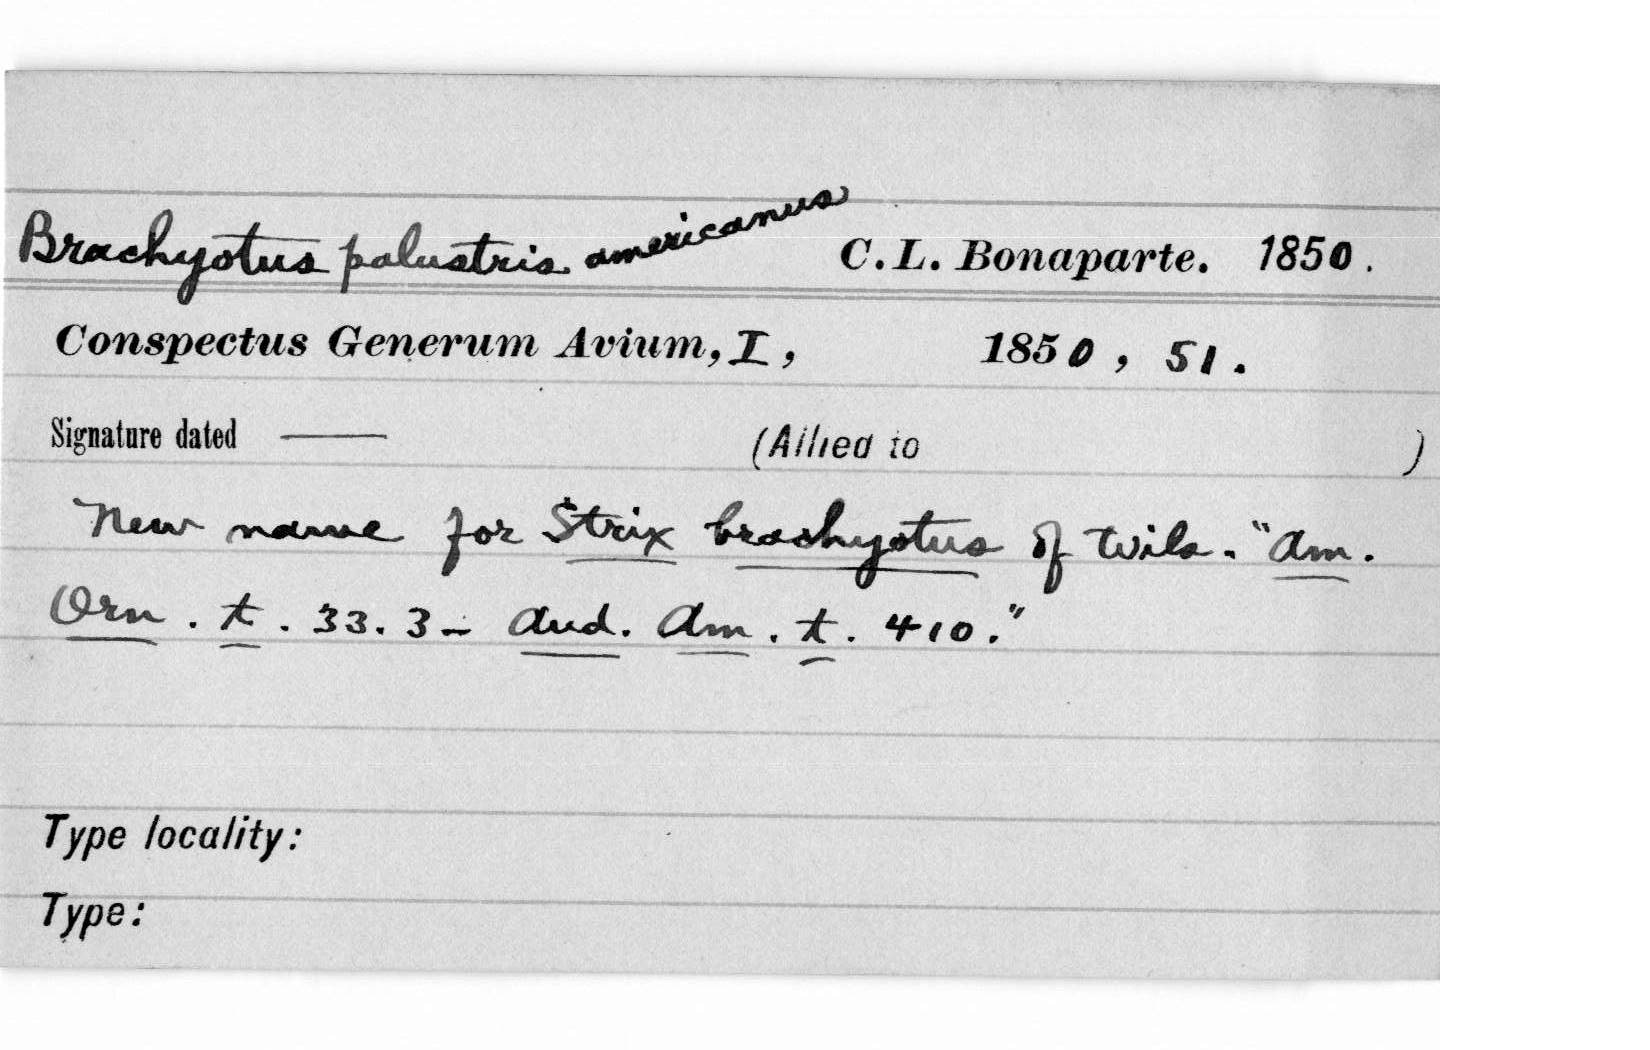 Brachyotus palustris americanus C. L. Bonaparte. 1850.
Conspectus Generum Avium, I, 1850, 51.
Signature dated — (Allied to )
New name for Strix brachyotus of Wils. "Am.
Orn. t. 33. 3 - Aud. Am. t. 410."
Type locality:
Type: